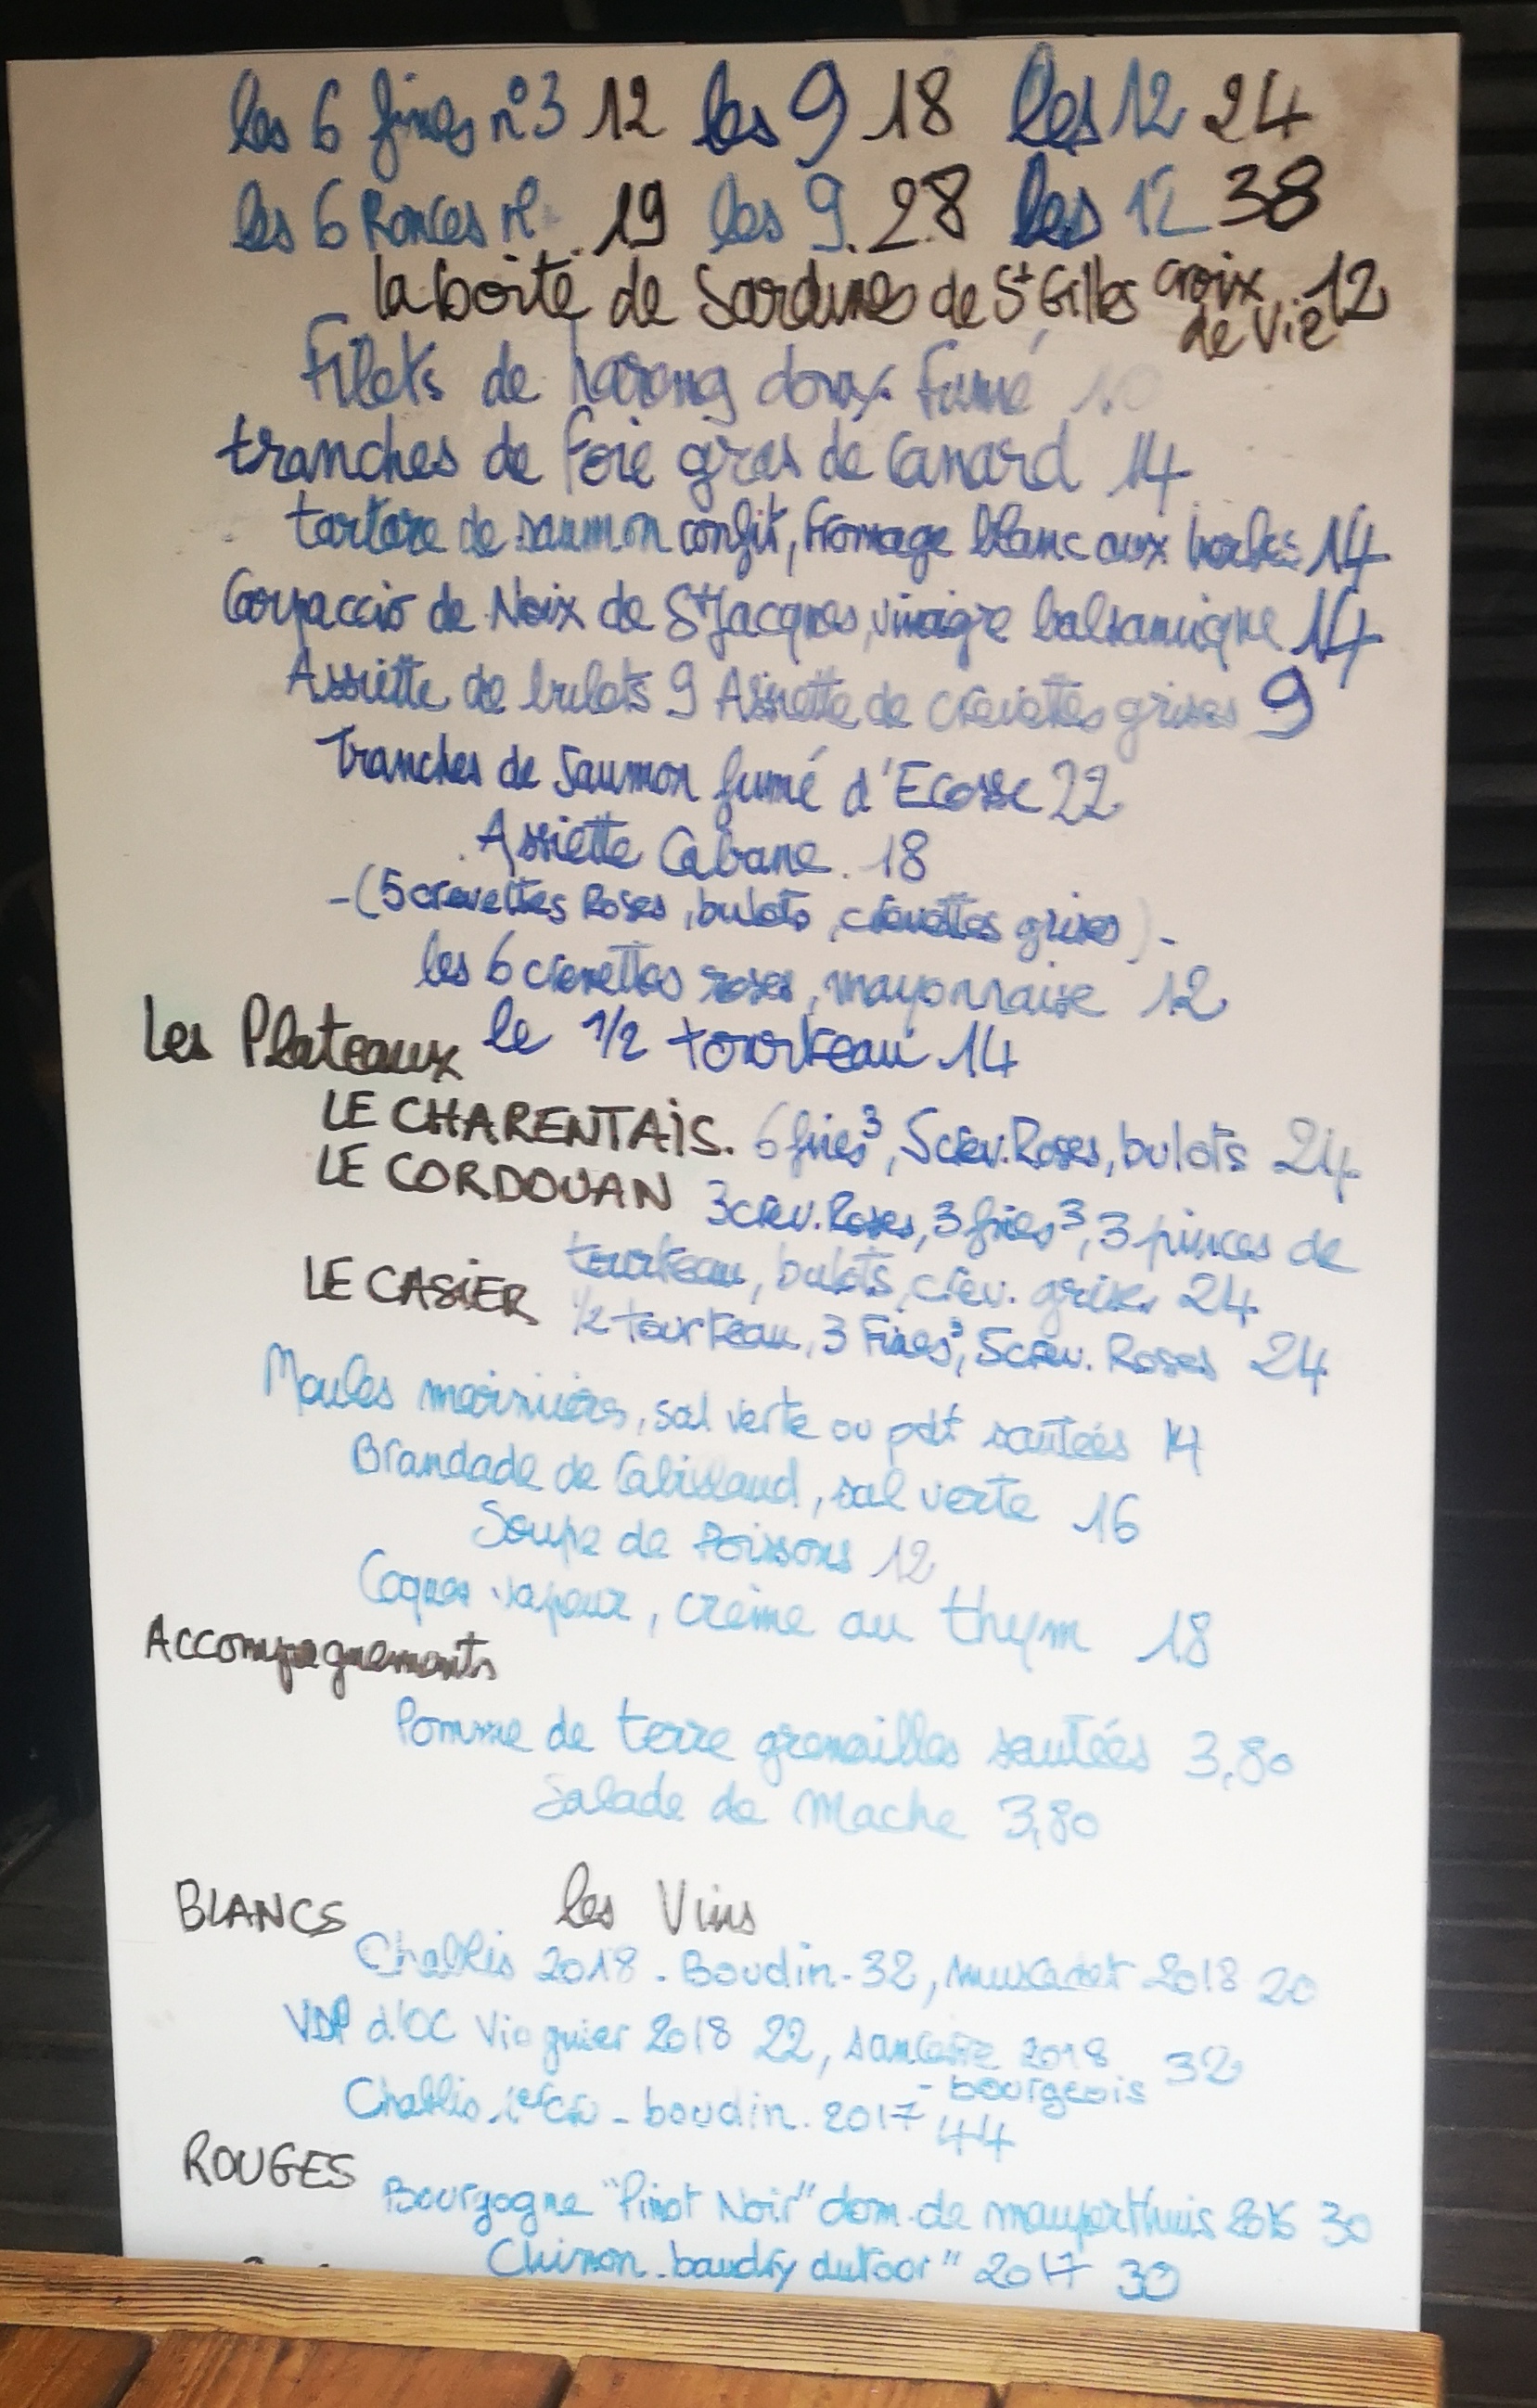 les 6 fines n°3 12 les 9 18 les 12 24
les 6 Ronces n° 19 les 9. 28 les 12 38
la boite de Sardines de St Gilles croix de Vie 12
Filets de hareng doux Fumé 10
tranches de Foie gras de Canard 14
tartare de saumon confit, Fromage blanc aux herbes 14
Carpaccio de Noix de St Jacques, vinaigre balsamique 14
Assiette de bulots 9 Assiette de crevettes grises 9
Tranches de Saumon fumé d'Ecosse 22
Assiette Cabane. 18
-(5 crevettes Roses, bulots, crevettes grises)-
les 6 crevettes roses, mayonnaise 12
Les Plateaux le 1/2 tourteau 14
LE CHARENTAIS. 6 fines³, 5 crev. Roses, bulots 24
LE CORDOUAN 3 crev. Roses, 3 fines³, 3 pinces de
tourteau, bulots, crev. grises 24
LE CASIER 1/2 tourteau, 3 Fines³, 5 crev. Roses 24
Moules marinières, sal verte ou pdt sautées 14
Brandade de Cabillaud, sal verte 16
Soupe de Poissons 12
Coques vapeur, crème au thym 18
Accompagnements
Pomme de terre grenailles sautées 3,80
Salade de Mache 3,80
BLANCS les Vins
Chablis 2018. Boudin. 32, muscadet 2018 20
VDP d'OC Viognier 2018 22, sancerre 2018 32
- bourgeois
Chablis. 1er Cru - boudin. 2017 44
ROUGES
Bourgogne "Pinot Noir" dom. de mauperthuis 2016 30
Chinon. baudry dutour" 2017 30